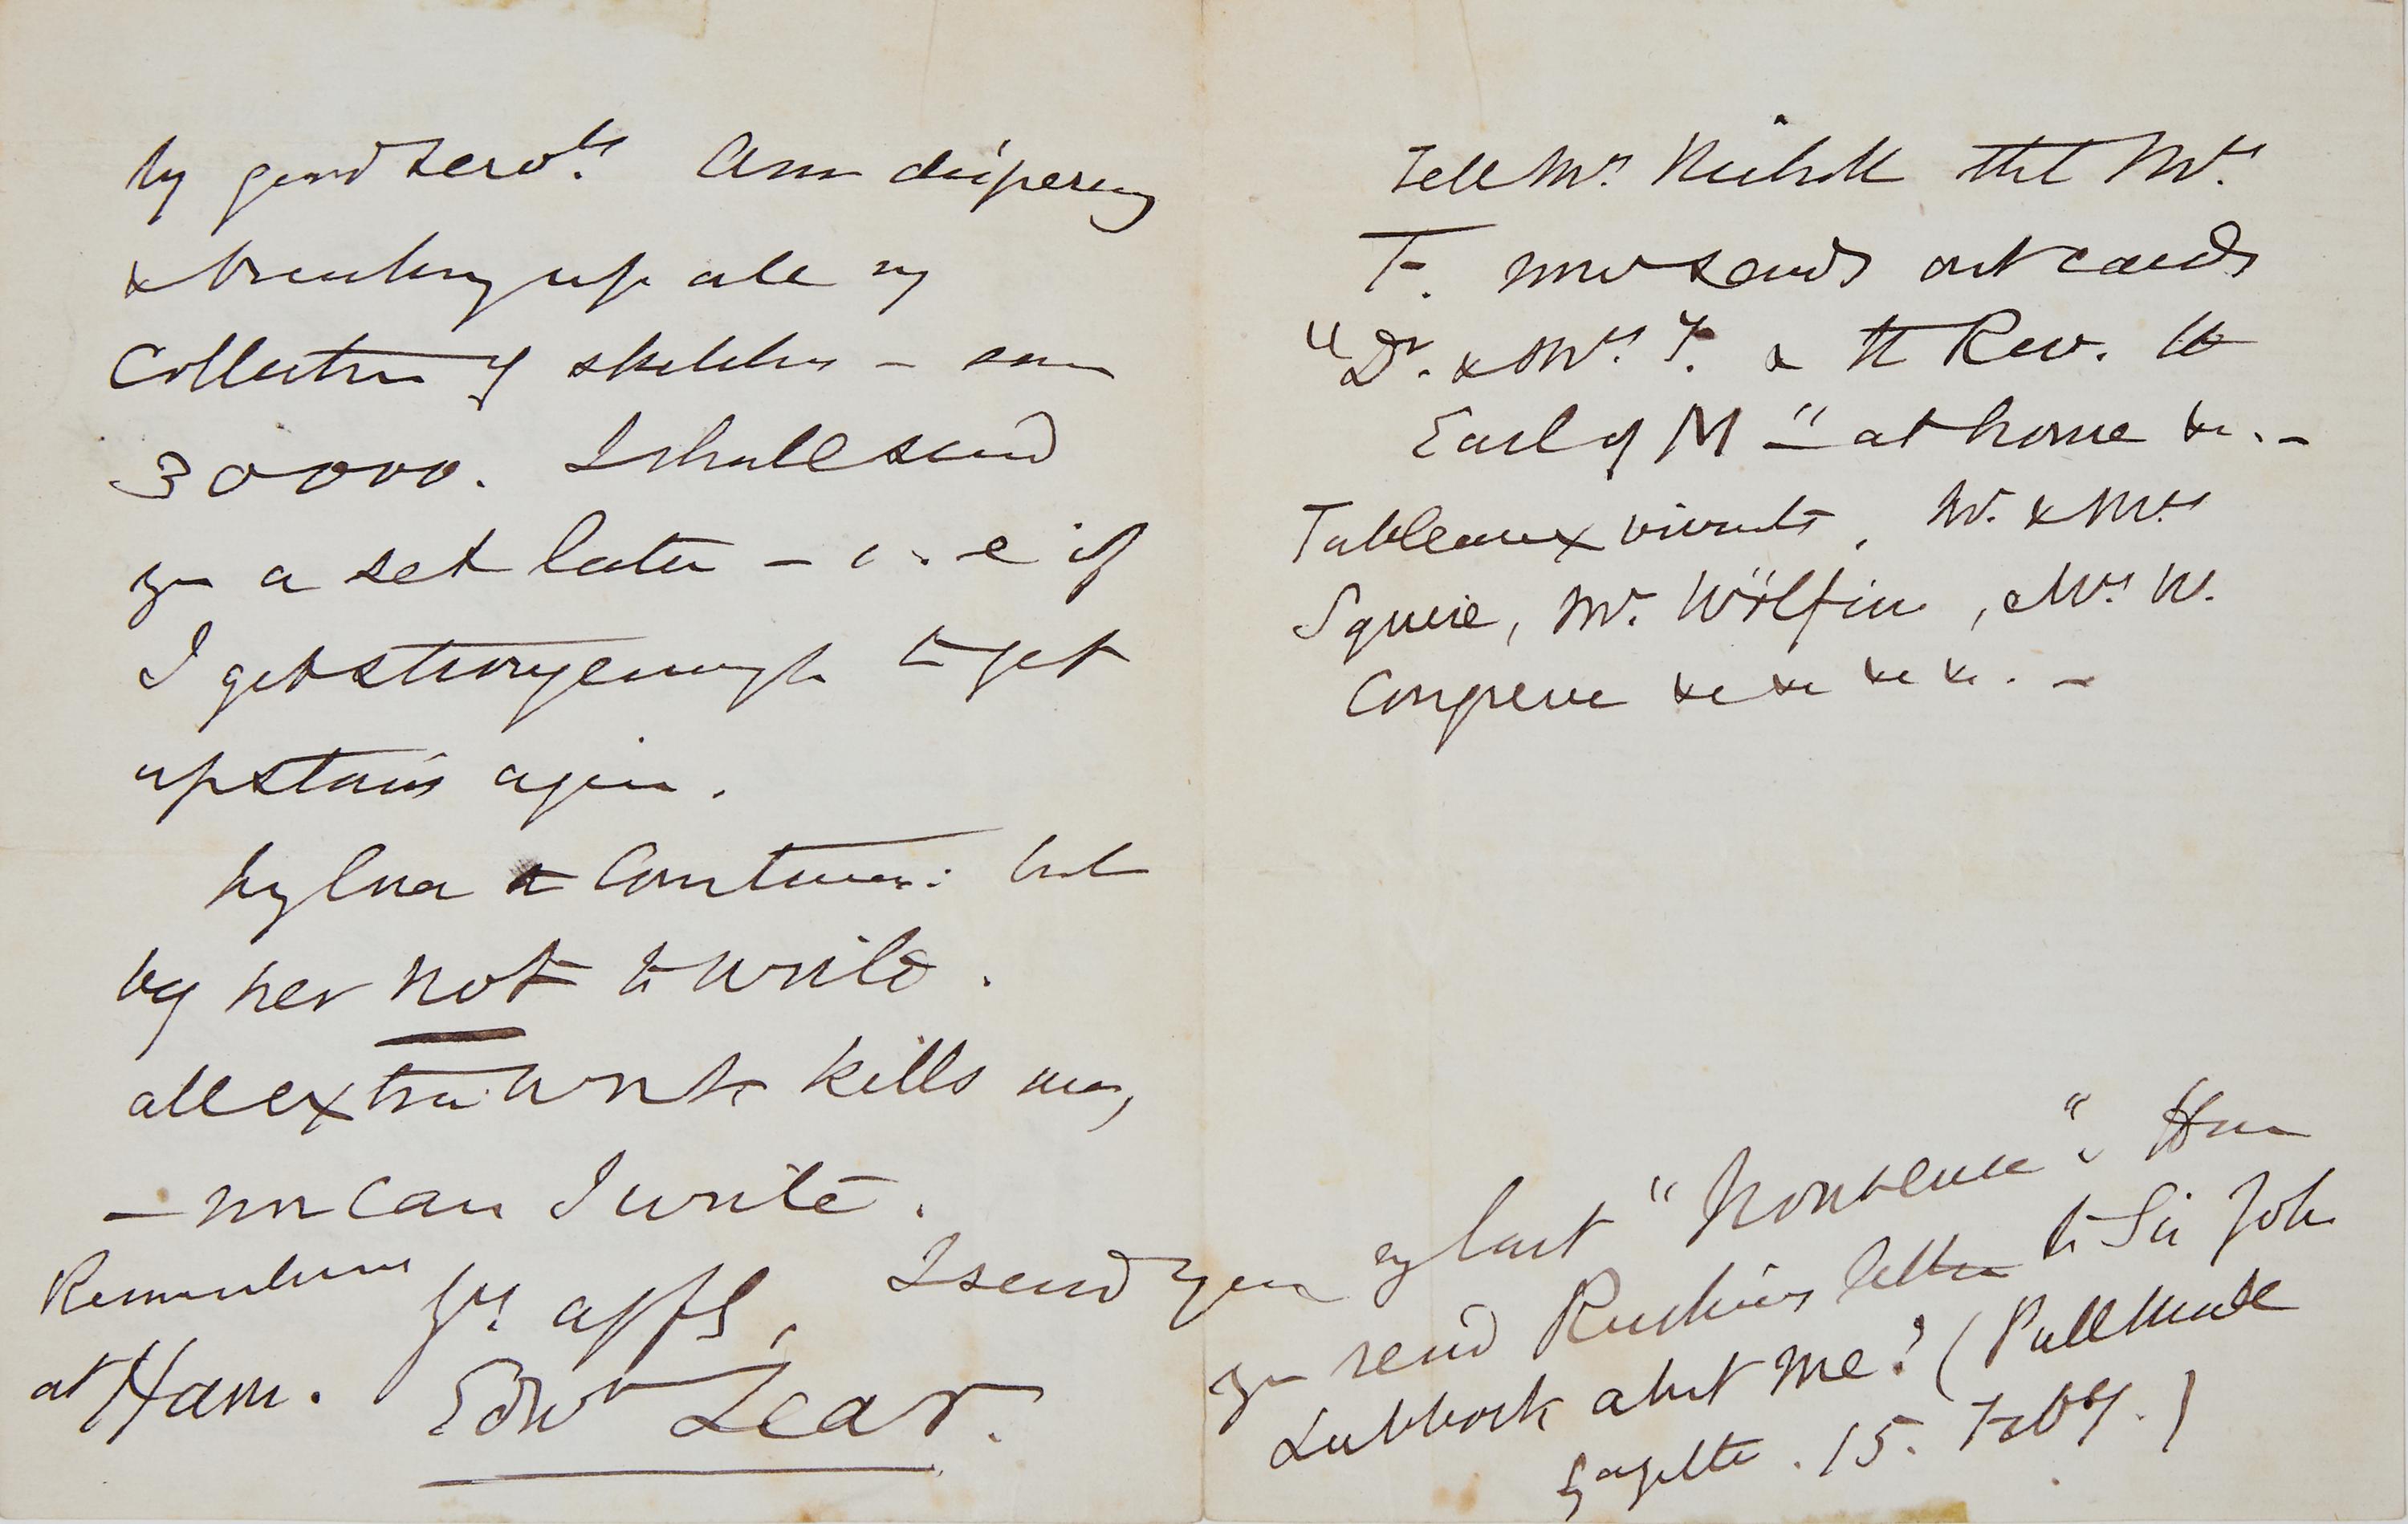 my good servts. Am dispersing
& breaking up all my
Collection of sketches — some
30000. I shall send
you a set later — i.e if
I get strong enough to get
upstairs again.
My love to Constance: but
beg her not to write.
all extra work kills me,
— nor can I write.
Remember me
at Ham.
Yrs. affly,
Edwd Lear.
Tell Mrs. that Mrs.
F. now sends out cards
"Dr. & Mrs. F. & the Rev. the
Earl of M" — at home &c. —
Tableaux vivants, Mr. & Mrs
Squire, Mr. Wölfin, Mrs. W.
Congreve &c &c &c &c. —
I send you my last "Nonsense". Have
you read Ruskin's letter to Sir John
Lubbock about me? (Pall Mall
Gazette. 15. Feby.)